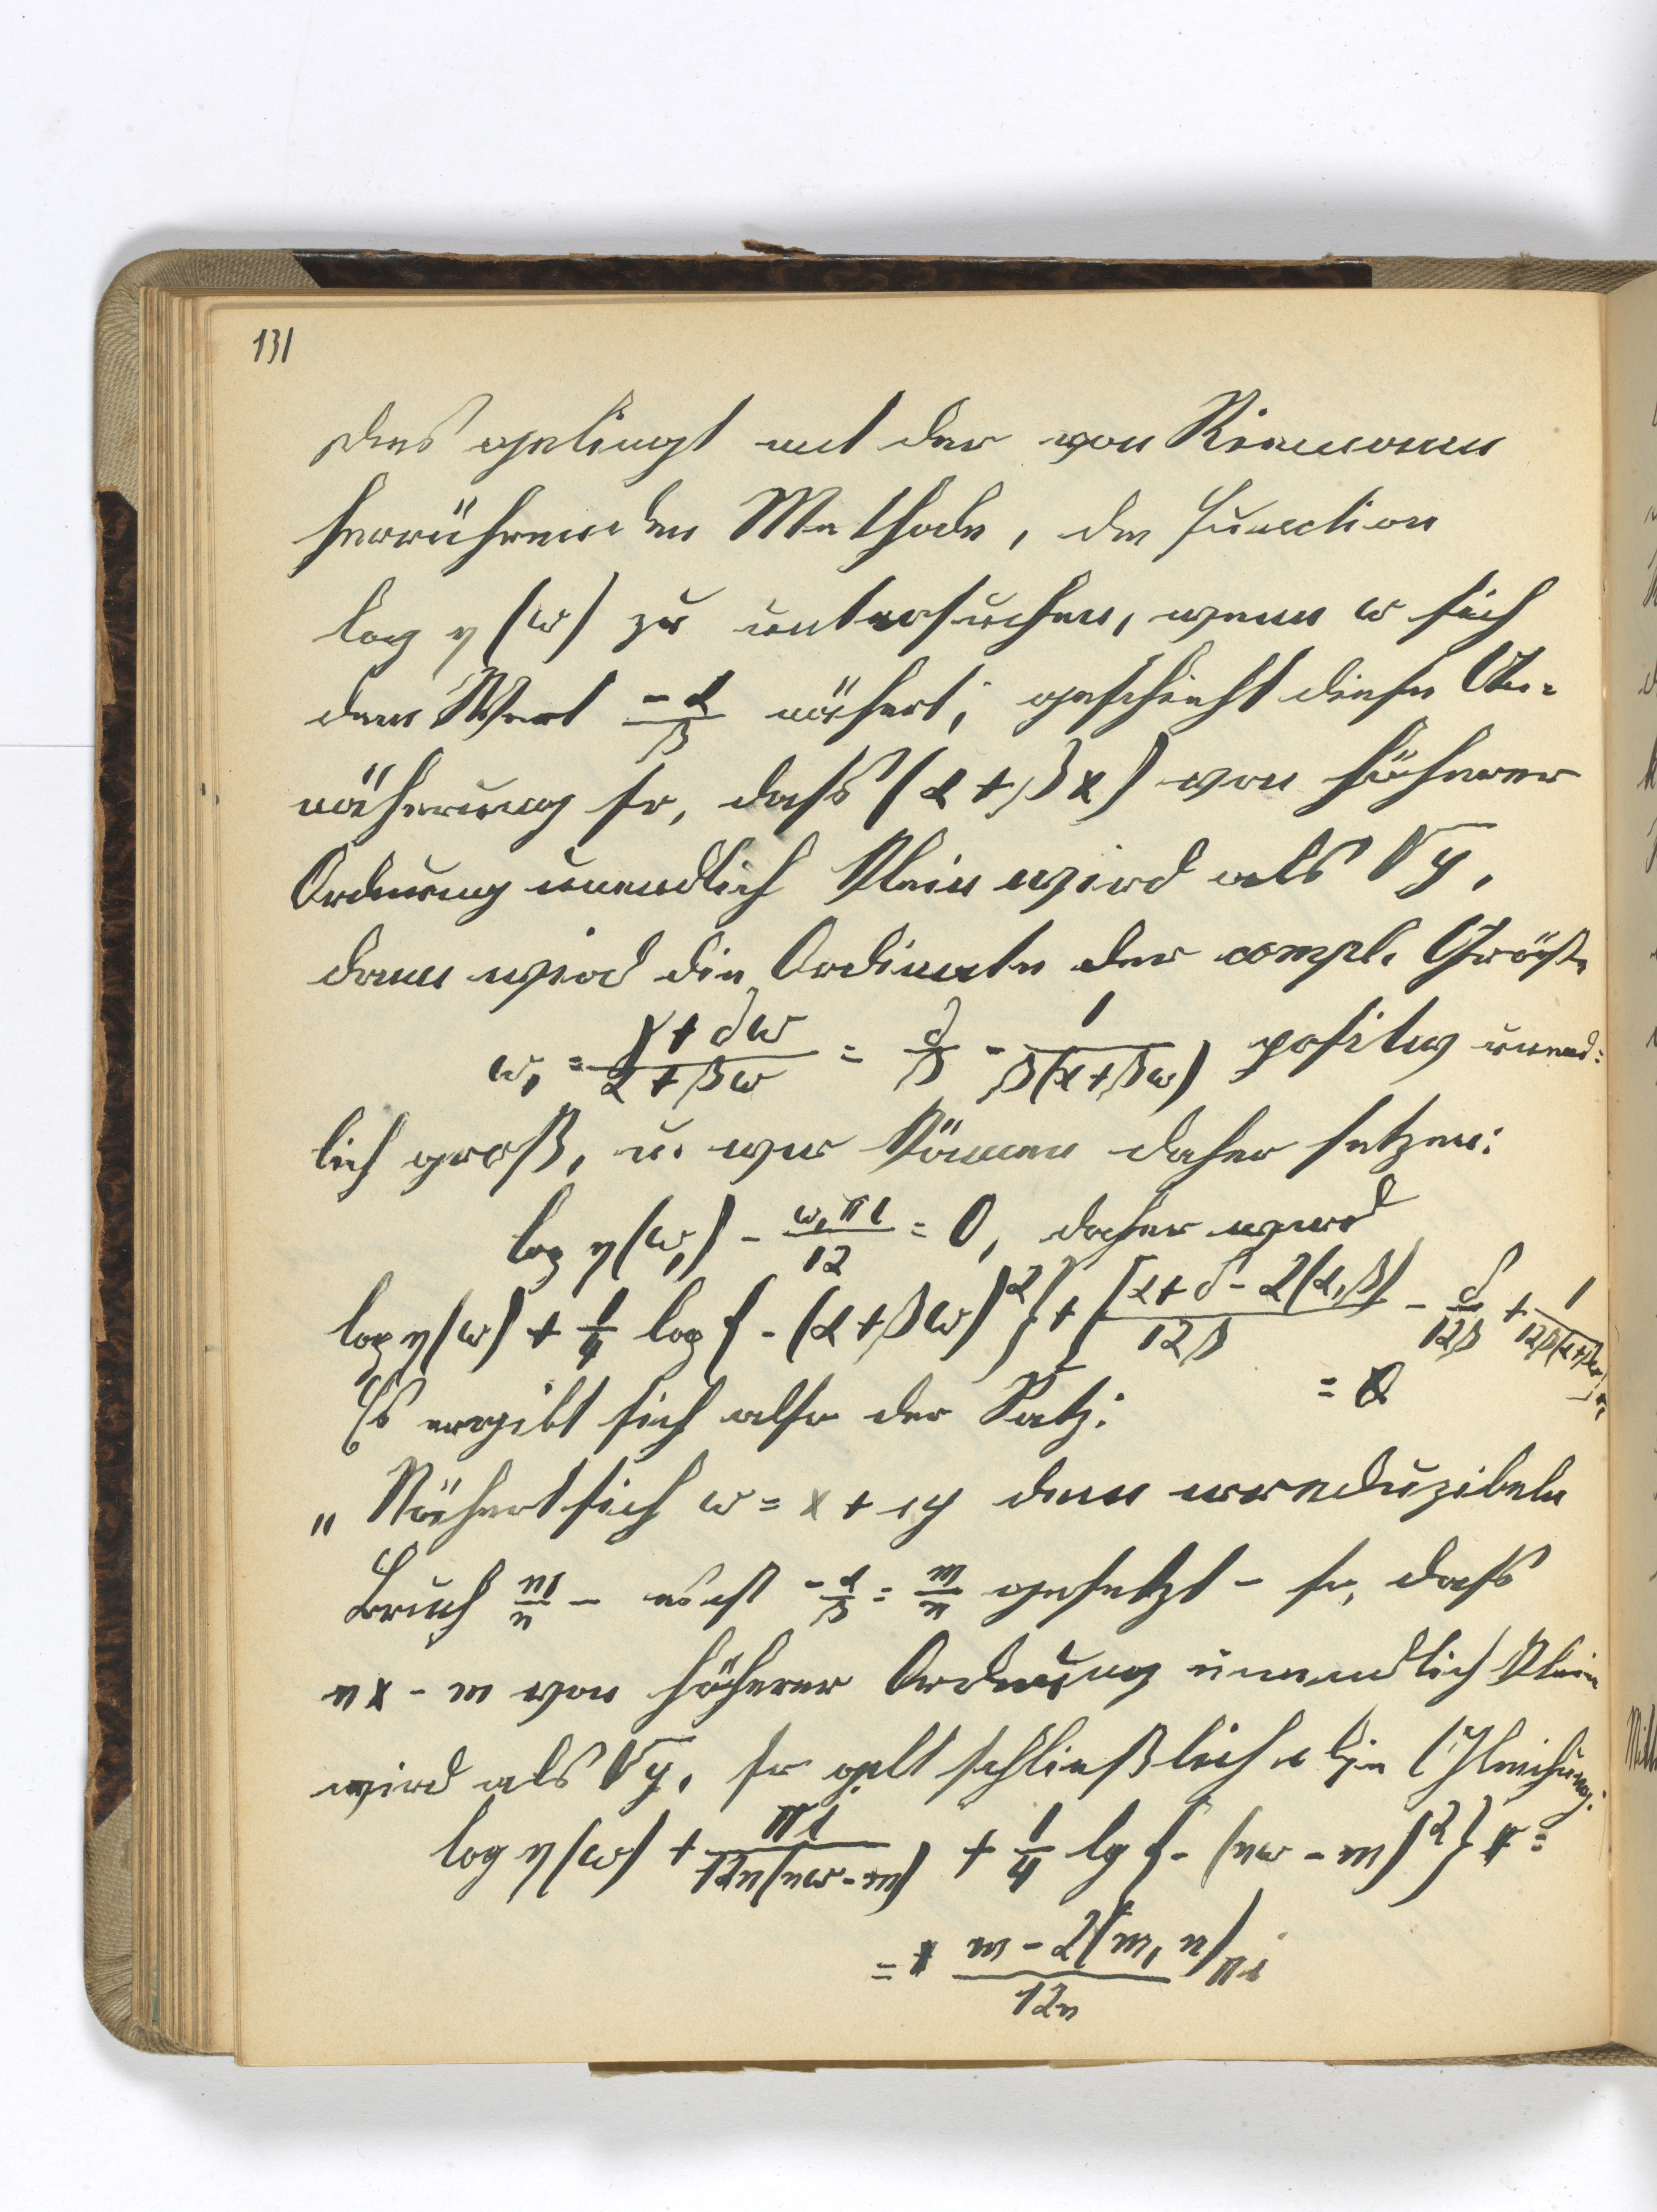 131
Dies gelingt mit der von Riemann
herrührenden Methode, die Function
log η(ω) zu untersuchen, wenn ω sich
dem Wert -α/β nähert; geschieht diese An=
näherung so, dass (α+βx) von höherer
Ordnung unendlich klein wird als √y,
dann wird die Ordinate der compl. Größe
ω₁ = (γ+δω)/(α+βω) = δ/β - 1/(β(α+βω)) positiv unend=
lich groß, u. wir können daher setzen:
log η(ω₁) - ω₁πi/12 = 0, daher wird
log η(ω) + 1/4 log{-(α+βω)²} + [(α+δ-2(α,β))/12β - δ/12β + 1/(12β(α+βω))]πi
= 0
Es ergibt sich also der Satz:
„Nähert sich ω = x+iy dem irreduzibeln
Bruch m/n - es ist -α/β = m/n gesetzt - so, dass
nx-m von höherer Ordnung unendlich klein
wird als √y, so gilt schließlich die Gleichung:
log η(ω) + πi/(12n(nω-m)) + 1/4 lg{-(nω-m)²} =
= (m-2(m,n))/12n πi